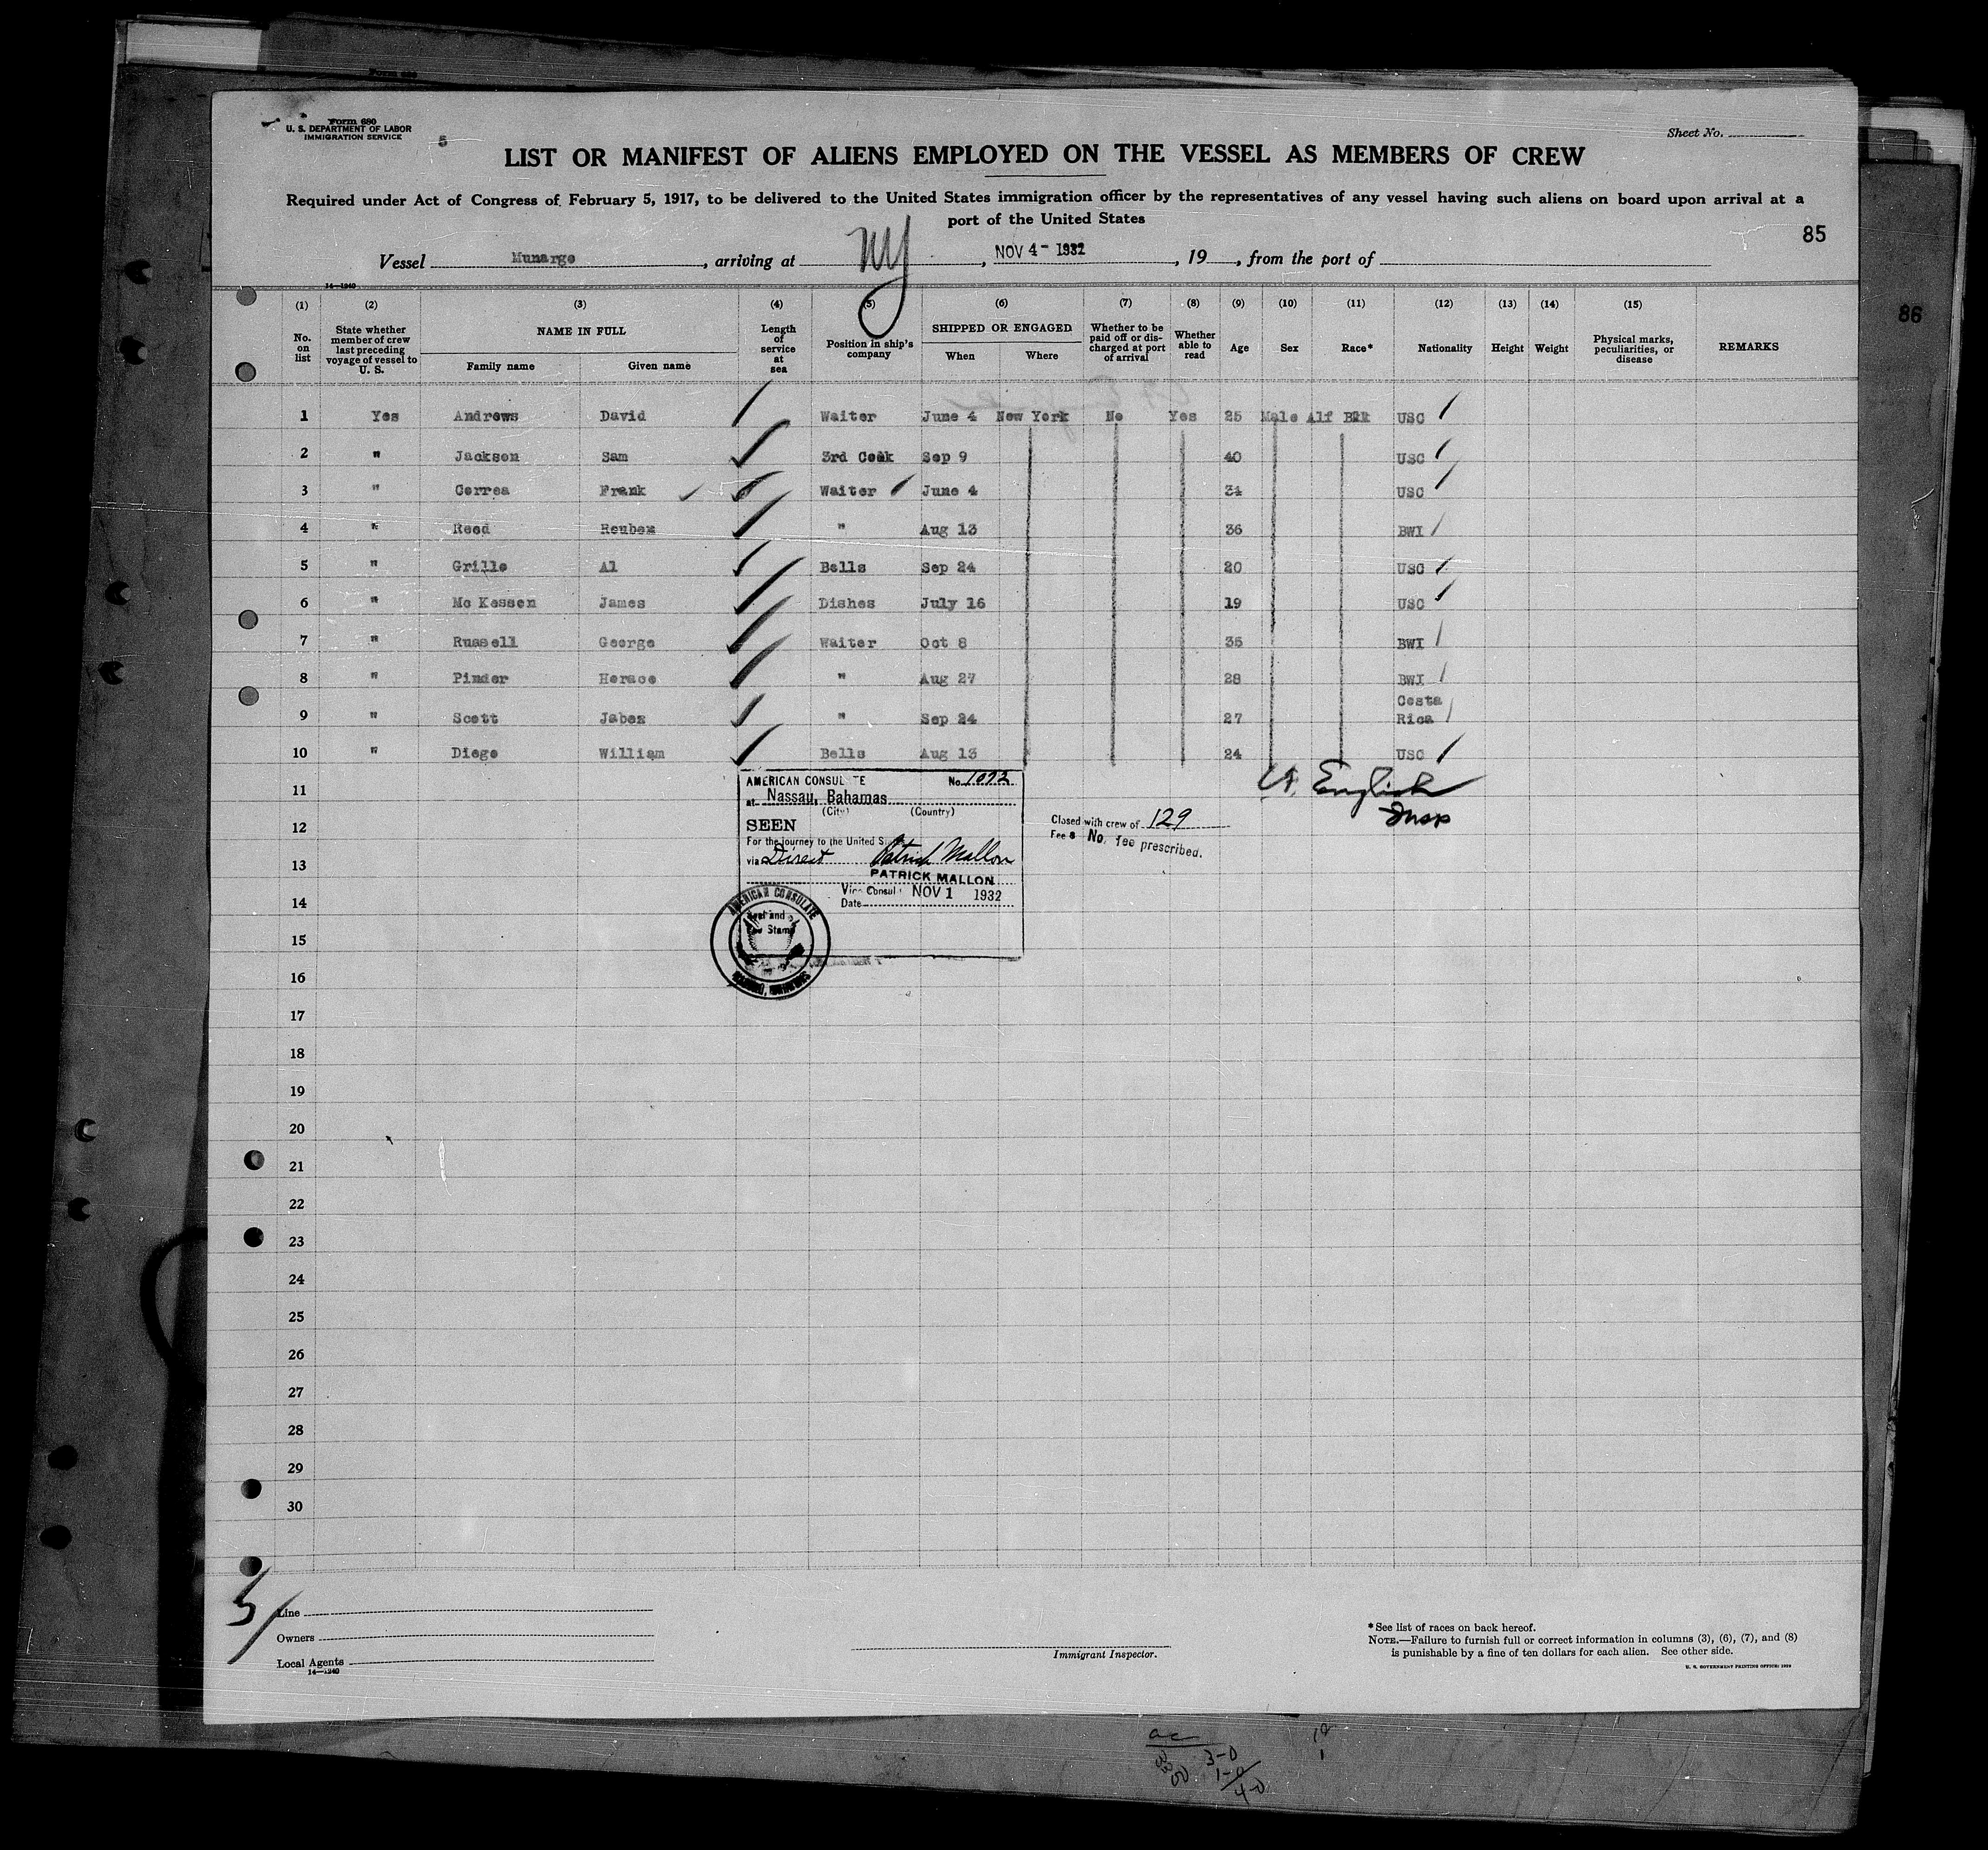 Form 680
U. S. DEPARTMENT OF LABOR
IMMIGRATION SERVICE
5
Sheet No.
LIST OR MANIFEST OF ALIENS EMPLOYED ON THE VESSEL AS MEMBERS OF CREW
Required under Act of Congress of February 5, 1917, to be delivered to the United States immigration officer by the representatives of any vessel having such aliens on board upon arrival at a
port of the United States
85
Vessel Munargo, arriving at NY, NOV 4 - 1932, 19, from the port of
14—1240
86
(1) (2) (3) (4) (5) (6) (7) (8) (9) (10) (11) (12) (13) (14) (15)
No. on list
State whether member of crew last preceding voyage of vessel to U. S.
NAME IN FULL
Family name
Given name
Length of service at sea
Position in ship's company
SHIPPED OR ENGAGED
When
Where
Whether to be paid off or discharged at port of arrival
Whether able to read
Age
Sex
Race*
Nationality
Height
Weight
Physical marks, peculiarities, or disease
REMARKS
1 Yes Andrews David Waiter June 4 New York No Yes 25 Male Alf Blk USC
2 " Jackson Sam 3rd Cook Sep 9 40 USC
3 " Correa Frank Waiter June 4 31 USC
4 " Reed Reuben " Aug 13 36 BWI
5 " Grillo Al Bells Sep 24 20 USC
6 " Mc Kesson James Dishes July 16 19 USC
7 " Russell George Waiter Oct 8 35 BWI
8 " Pinder Horace " Aug 27 28 BWI
9 " Scott Jabez " Sep 24 27 Costa Rica
10 " Diego William Bells Aug 13 24 USC
11
12
13
14
15
16
17
18
19
20
21
22
23
24
25
26
27
28
29
30
AMERICAN CONSULATE No. 1092
at Nassau, Bahamas
(City) (Country)
SEEN
For the journey to the United S
via Direct Patrick Mallon
PATRICK MALLON
Vice Consul
Date NOV 1 1932
AMERICAN CONSULATE
Seal and
Fee Stamp
NASSAU, BAHAMAS
Closed with crew of 129
Fee s No. fee prescribed.
English
Insp
5/
Line
Owners
Local Agents
14—1240
Immigrant Inspector.
*See list of races on back hereof.
NOTE.—Failure to furnish full or correct information in columns (3), (6), (7), and (8)
is punishable by a fine of ten dollars for each alien. See other side.
3-0
1-0
4-0